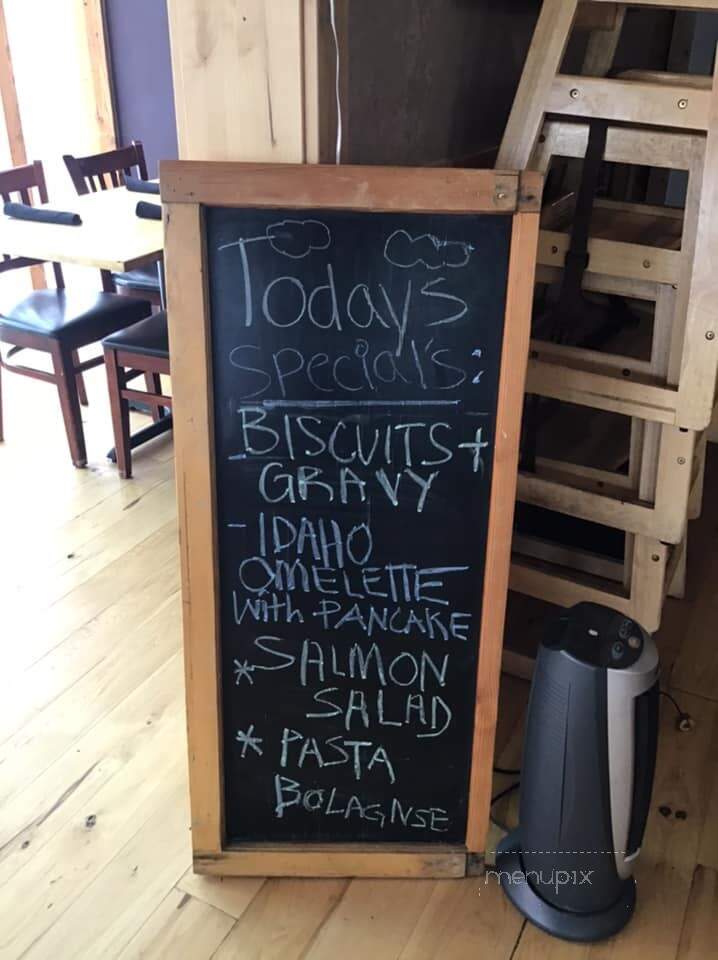 Today's
Special's:
BISCUITS +
GRAVY
- IDAHO
OMELETTE
With PANCAKE
* SALMON
SALAD
* PASTA
BOLAGNSE
menupix